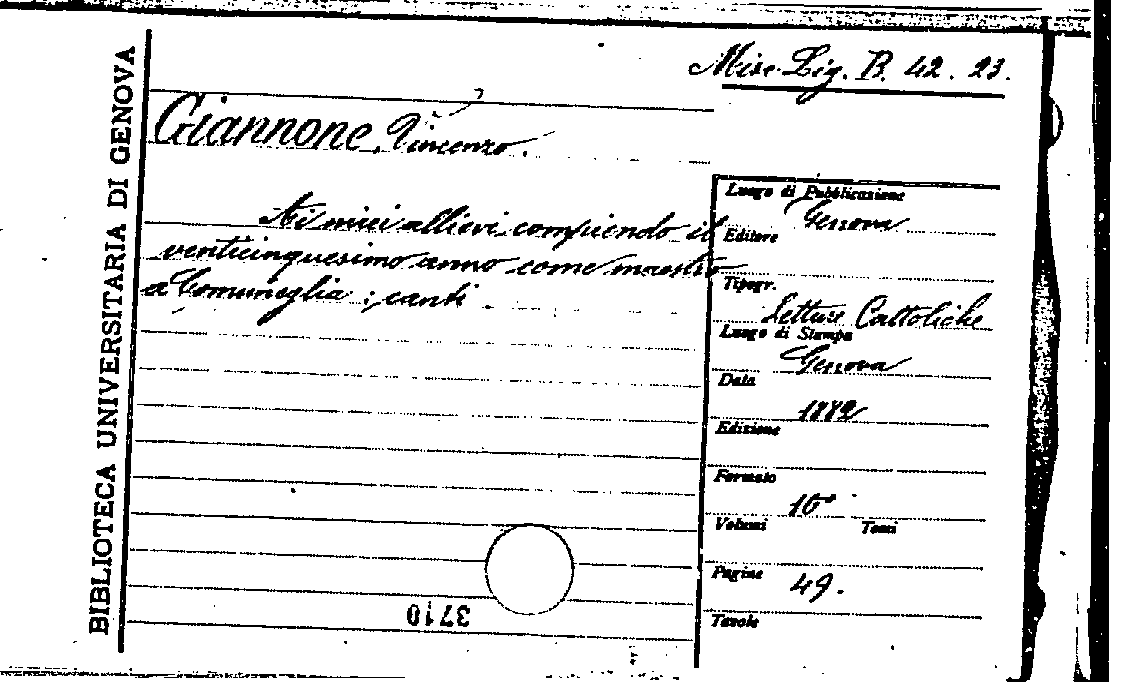 BIBLIOTECA UNIVERSITARIA DI GENOVA
Misc. Lig. B. 42. 23.
Giannone, Vincenzo.
Ai miei allievi compiendo il
venticinquesimo anno come maestro
a Comuneglia : canti
Luogo di Pubblicazione
Genova
Editore
Tipogr.
Letture Cattoliche
Luogo di Stampa
Genova
Data
1882
Edizione
Formato
16°
Volumi Tomi
Pagine
49.
Tavole
3710